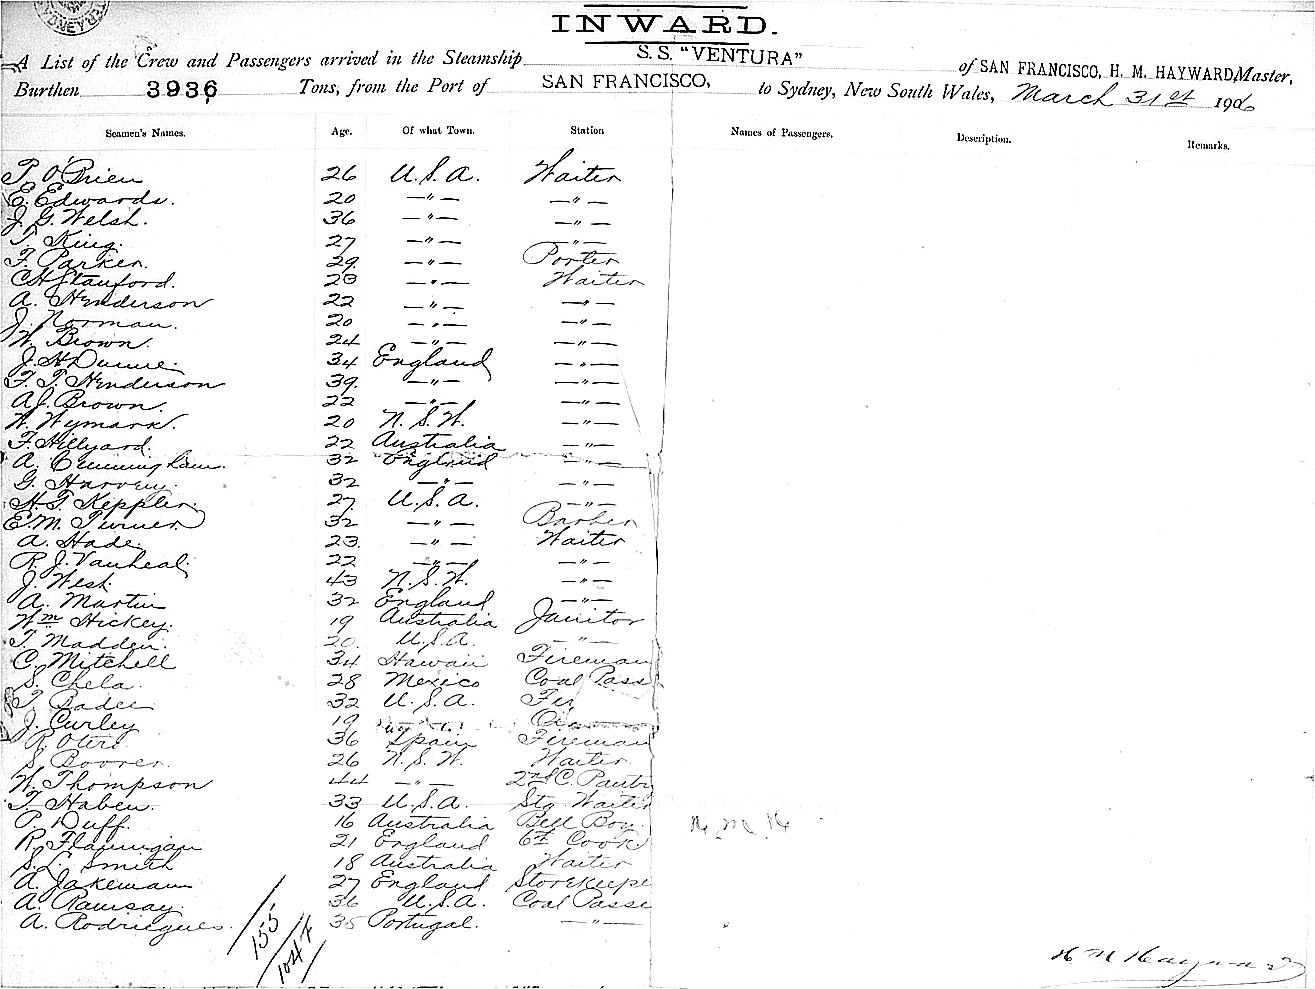 INWARD.
A List of the Crew and Passengers arrived in the Steamship S.S. "VENTURA" of SAN FRANCISCO, H. M. HAYWARD, Master,
Burthen 3936 Tons, from the Port of SAN FRANCISCO, to Sydney, New South Wales, March 31st 1906
Seamen's Names. Age. Of what Town. Station Names of Passengers. Description. Remarks.
T. O'Brien 26 U.S.A. Waiter
E. Edwards. 20 —"— —"—
J. G. Welsh. 36 —"— —"—
T. King. 27 —"— —"—
F. Parker. 29. —"— Porter
C H Stanford. 23 —"— Waiter
A. Henderson 22 —"— —"—
J. Norman. 20 —"— —"—
W. Brown. 24 —"— —"—
J. H Dunne 34 England —"—
F. T. Henderson 39. —"— —"—
A J. Brown. 22 —"— —"—
W. Wymark. 20 N.S.W. —"—
F. Hillyard. 22 Australia —"—
A. Cunningham. 32 England —"—
G. Harvey. 32 —"— —"—
H. T. Keppler. 27 U.S.A. —"—
E. M. Turner 32 —"— Barber
A. Hade. 23. —"— Waiter
R. J. Vanheal. 22 —"— —"—
J. West. 43 N.S.W. —"—
A. Martin 32 England —"—
Wm Hickey. 19 Australia Janitor
T. Madden. 20. U.S.A. —"—
C. Mitchell 34 Hawaii Fireman
S. Chela. 28 Mexico Coal Pass
T. Badee 32 U.S.A. Fir
J. Curley 19
R. Otero 36 Spain Fireman
S. Boorer. 26 N.S.W. Waiter
W. Thompson 44 —"— 2nd C. Pantry
T. Haben. 33 U.S.A. Stg Waiter
P. Duff. 16 Australia Bell Boy. H M H
R. Flannigan 21 England 6th Cook
S. L. Smith 18 Australia Waiter
A. Jakeman 27 England Storekeepe
A. Ramsay. 36 U.S.A. Coal Passe
A. Rodriegues. 35 Portugal. —"—
155
1047
H M Hayward